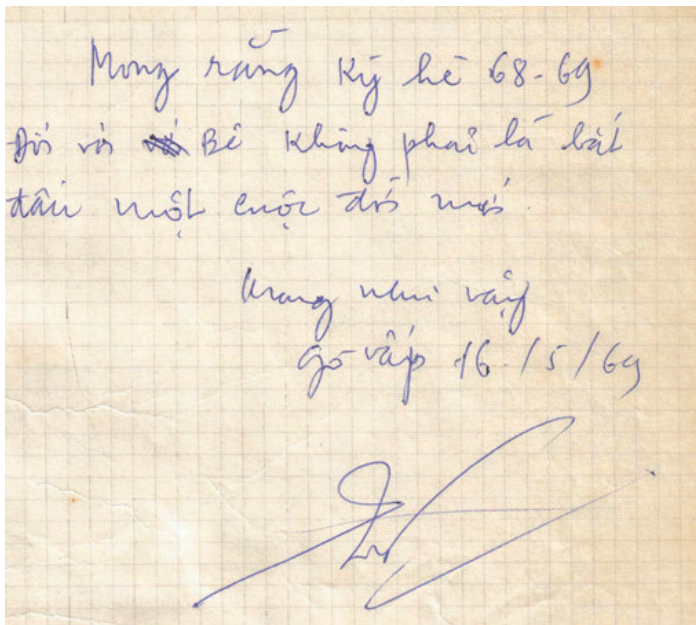 Mong rằng Kỳ hè 68-69
Đối với Bé không phải là bắt
đầu một cuộc đời mới.
Mong như vậy
Gò vấp 16/5/69